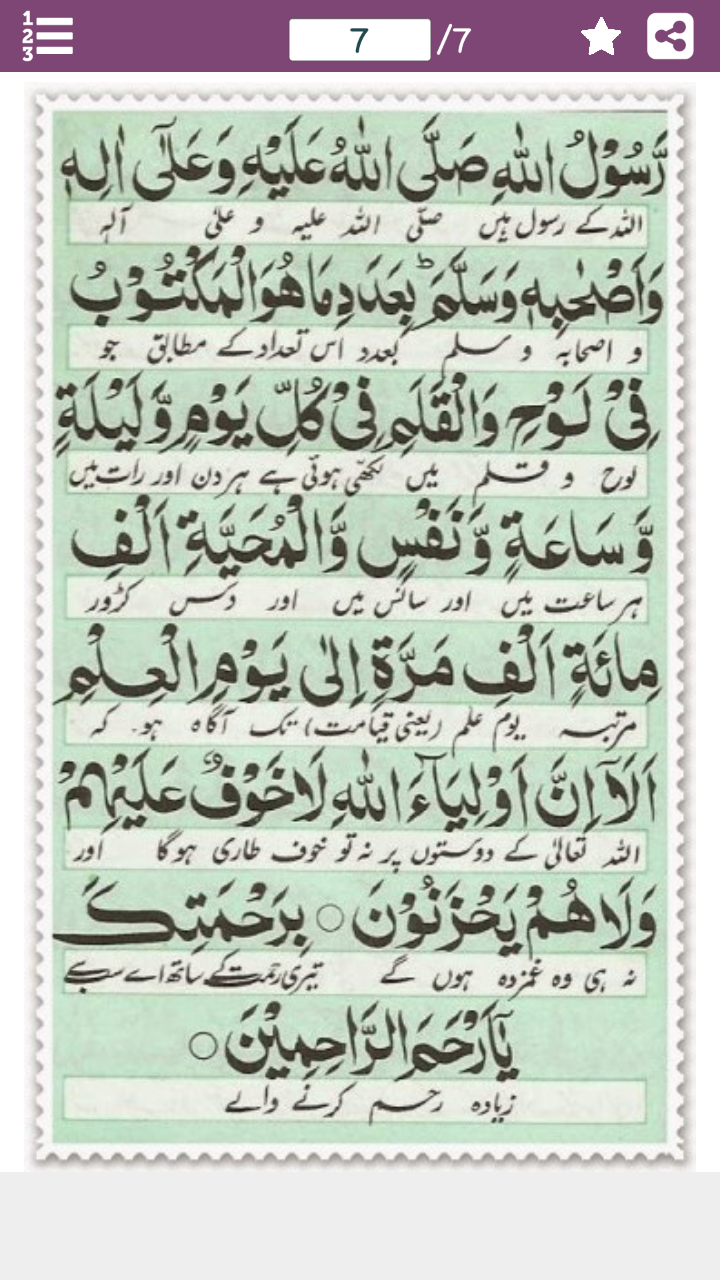 1
2
3
7 /7
رَّسُوْلُ اللّٰهِ صَلَّى اللّٰهُ عَلَيْهِ وَعَلٰٓى اٰلِهٖ
اللہ کے رسول ہیں صلّی اللہ علیہ و علیٰ آلہٖ
وَاَصْحٰبِهٖ وَسَلَّمَ ؕ بِعَدَدِ مَا هُوَ الْمَكْتُوْبُ
و اصحابہٖ و سلم بعدد اس تعداد کے مطابق جو
فِىْ لَوْحِ وَالْقَلَمِ فِىْ كُلِّ يَوْمٍ وَّلَيْلَةٍ
لوح و قلم میں لکھی ہوئی ہے ہر دن اور رات میں
وَّسَاعَةٍ وَّنَفْسٍ وَّالْمُحَيَّةِ اَلْفِ
ہر ساعت میں اور سانس میں اور دس کڑور
مِائَةِ اَلْفِ مَرَّةٍ اِلٰى يَوْمِ الْعِلْمِ
مرتبہ یوم علم (یعنی قیامت) تک آگاہ ہو۔ کہ
اَلَآ اِنَّ اَوْلِيَآءَ اللّٰهِ لَا خَوْفٌ عَلَيْهِمْ
اللہ تعالیٰ کے دوستوں پر نہ تو خوف طاری ہو گا اور
وَلَا هُمْ يَحْزَنُوْنَ ○ بِرَحْمَتِكَ
نہ ہی وہ غمزدہ ہوں گے تیری رحمت کے ساتھ اے سب سے
يَآ اَرْحَمَ الرَّاحِمِيْنَ ○
زیادہ رحم کرنے والے